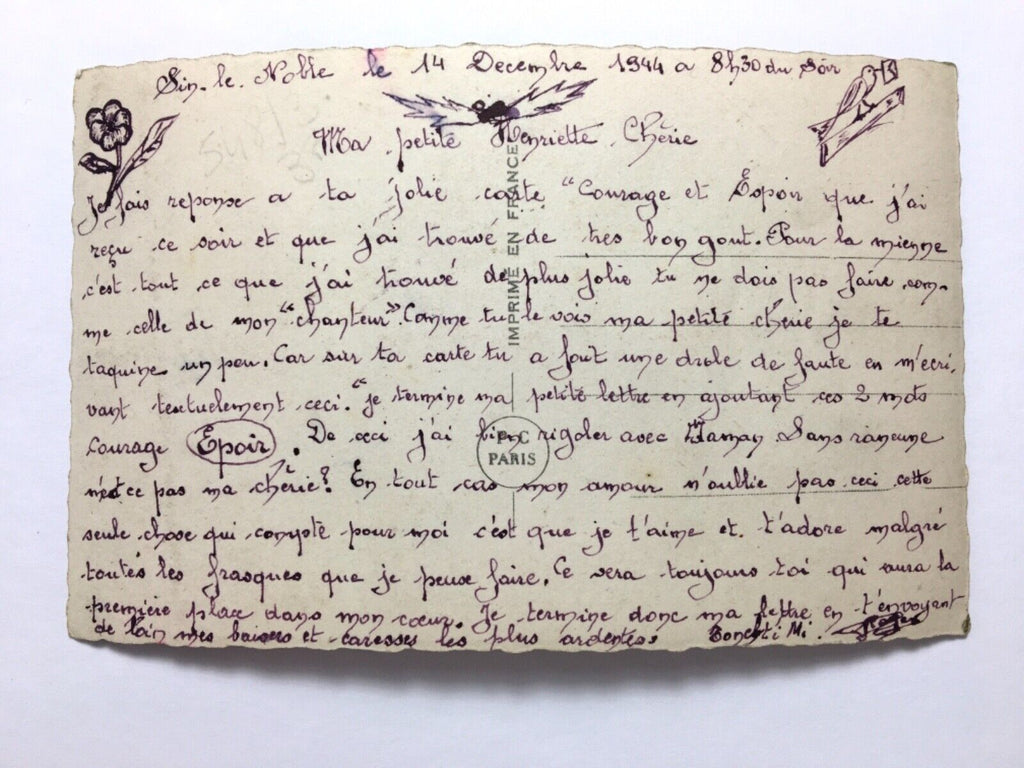 Sin. le. Noble le 14 Decembre 1944 a 8h30 du Soir
Ma petite Henriette Chérie
Je fais reponse a ta jolie carte "Courage et Espoir que j'ai
reçu ce soir et que j'ai trouvé de tres bon gout. Pour la mienne
c'est tout ce que j'ai trouvé de plus jolie tu ne dois pas faire com-
me celle de mon "chanteur". Comme tu le vois ma petite chérie je te
taquine un peu. Car sur ta carte tu a fait une drole de faute en m'ecri-
vant textuelement ceci. "je termine ma petite lettre en ajoutant ces 2 mots
courage Epoir. De ceci j'ai bien rigoler avec Maman Sans rancune
n'est ce pas ma chérie? En tout cas mon amour n'oublie pas ceci cette
seule chose qui compte pour moi c'est que je t'aime et t'adore malgré
toutes les frasques que je peux faire. Ce sera toujours toi qui aura la
première place dans mon cœur. Je termine donc ma lettre en t'envoyant
de loin mes baisers et caresses les plus ardentes. Ton Mi.
IMPRIMÉ EN FRANCE
P-C
PARIS